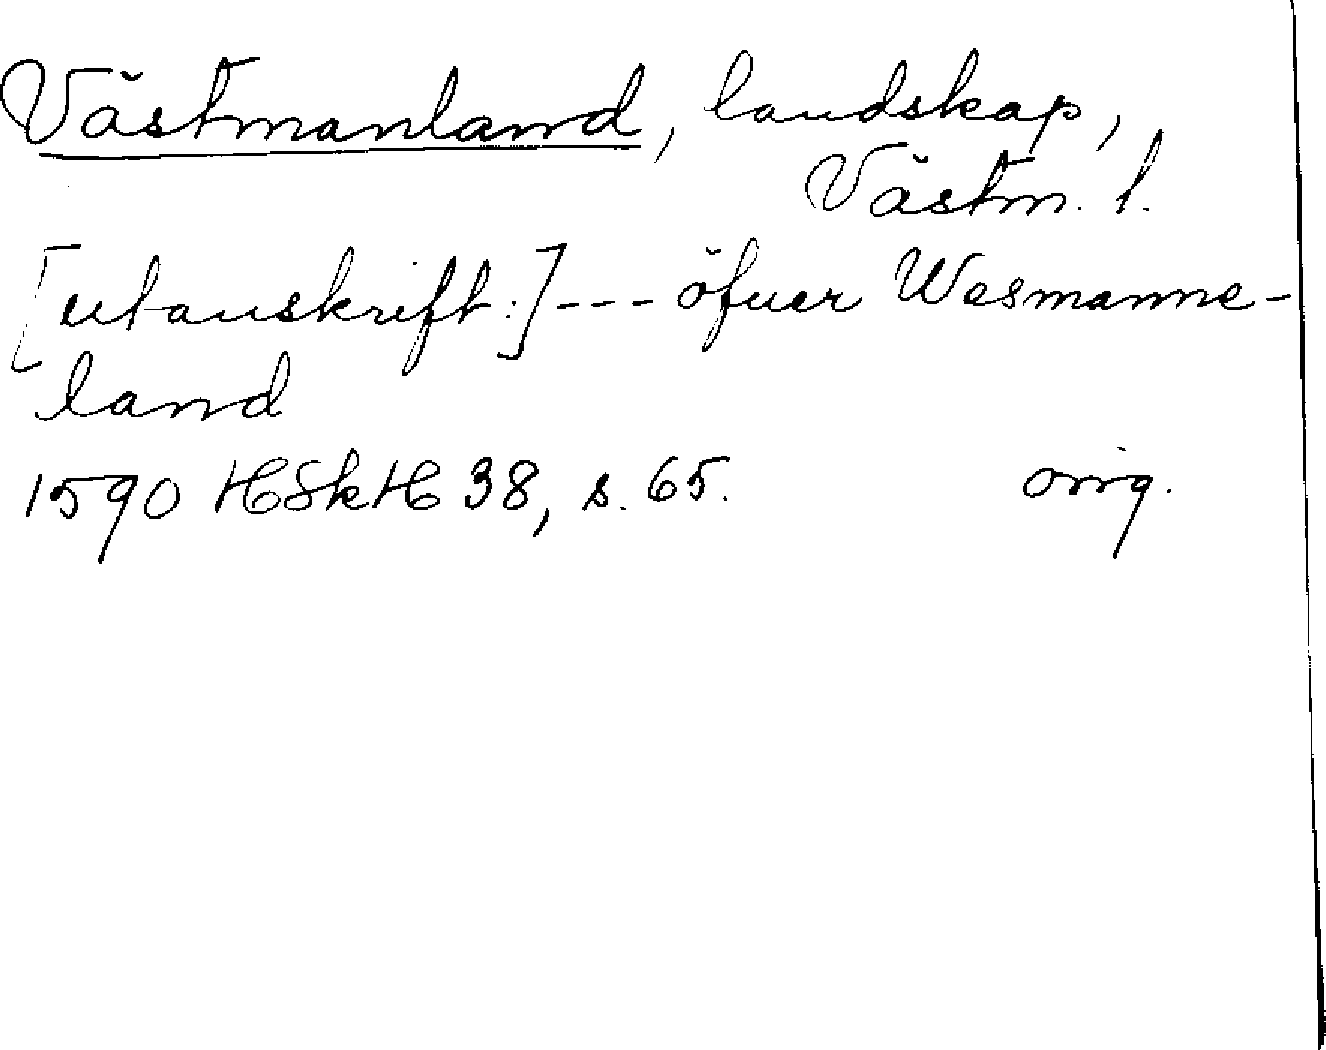 Västmanland, landskap,
Västm. l.
[utanskrift:] --- öfuer Wesmanne-
land
1590 HSkH 38, s. 65. orig.